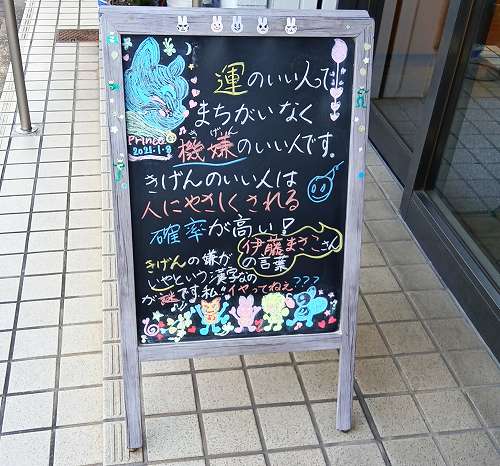 運のいい人で
まちがいなく
Prince
2021.1.8
きげん
機嫌のいい人です。
きげんのいい人は
人にやさしくされる
確率が高い!
伊藤まさこさん
の言葉
きげんの嫌が
いやという漢字なの
が謎です。私“イヤってねぇ???